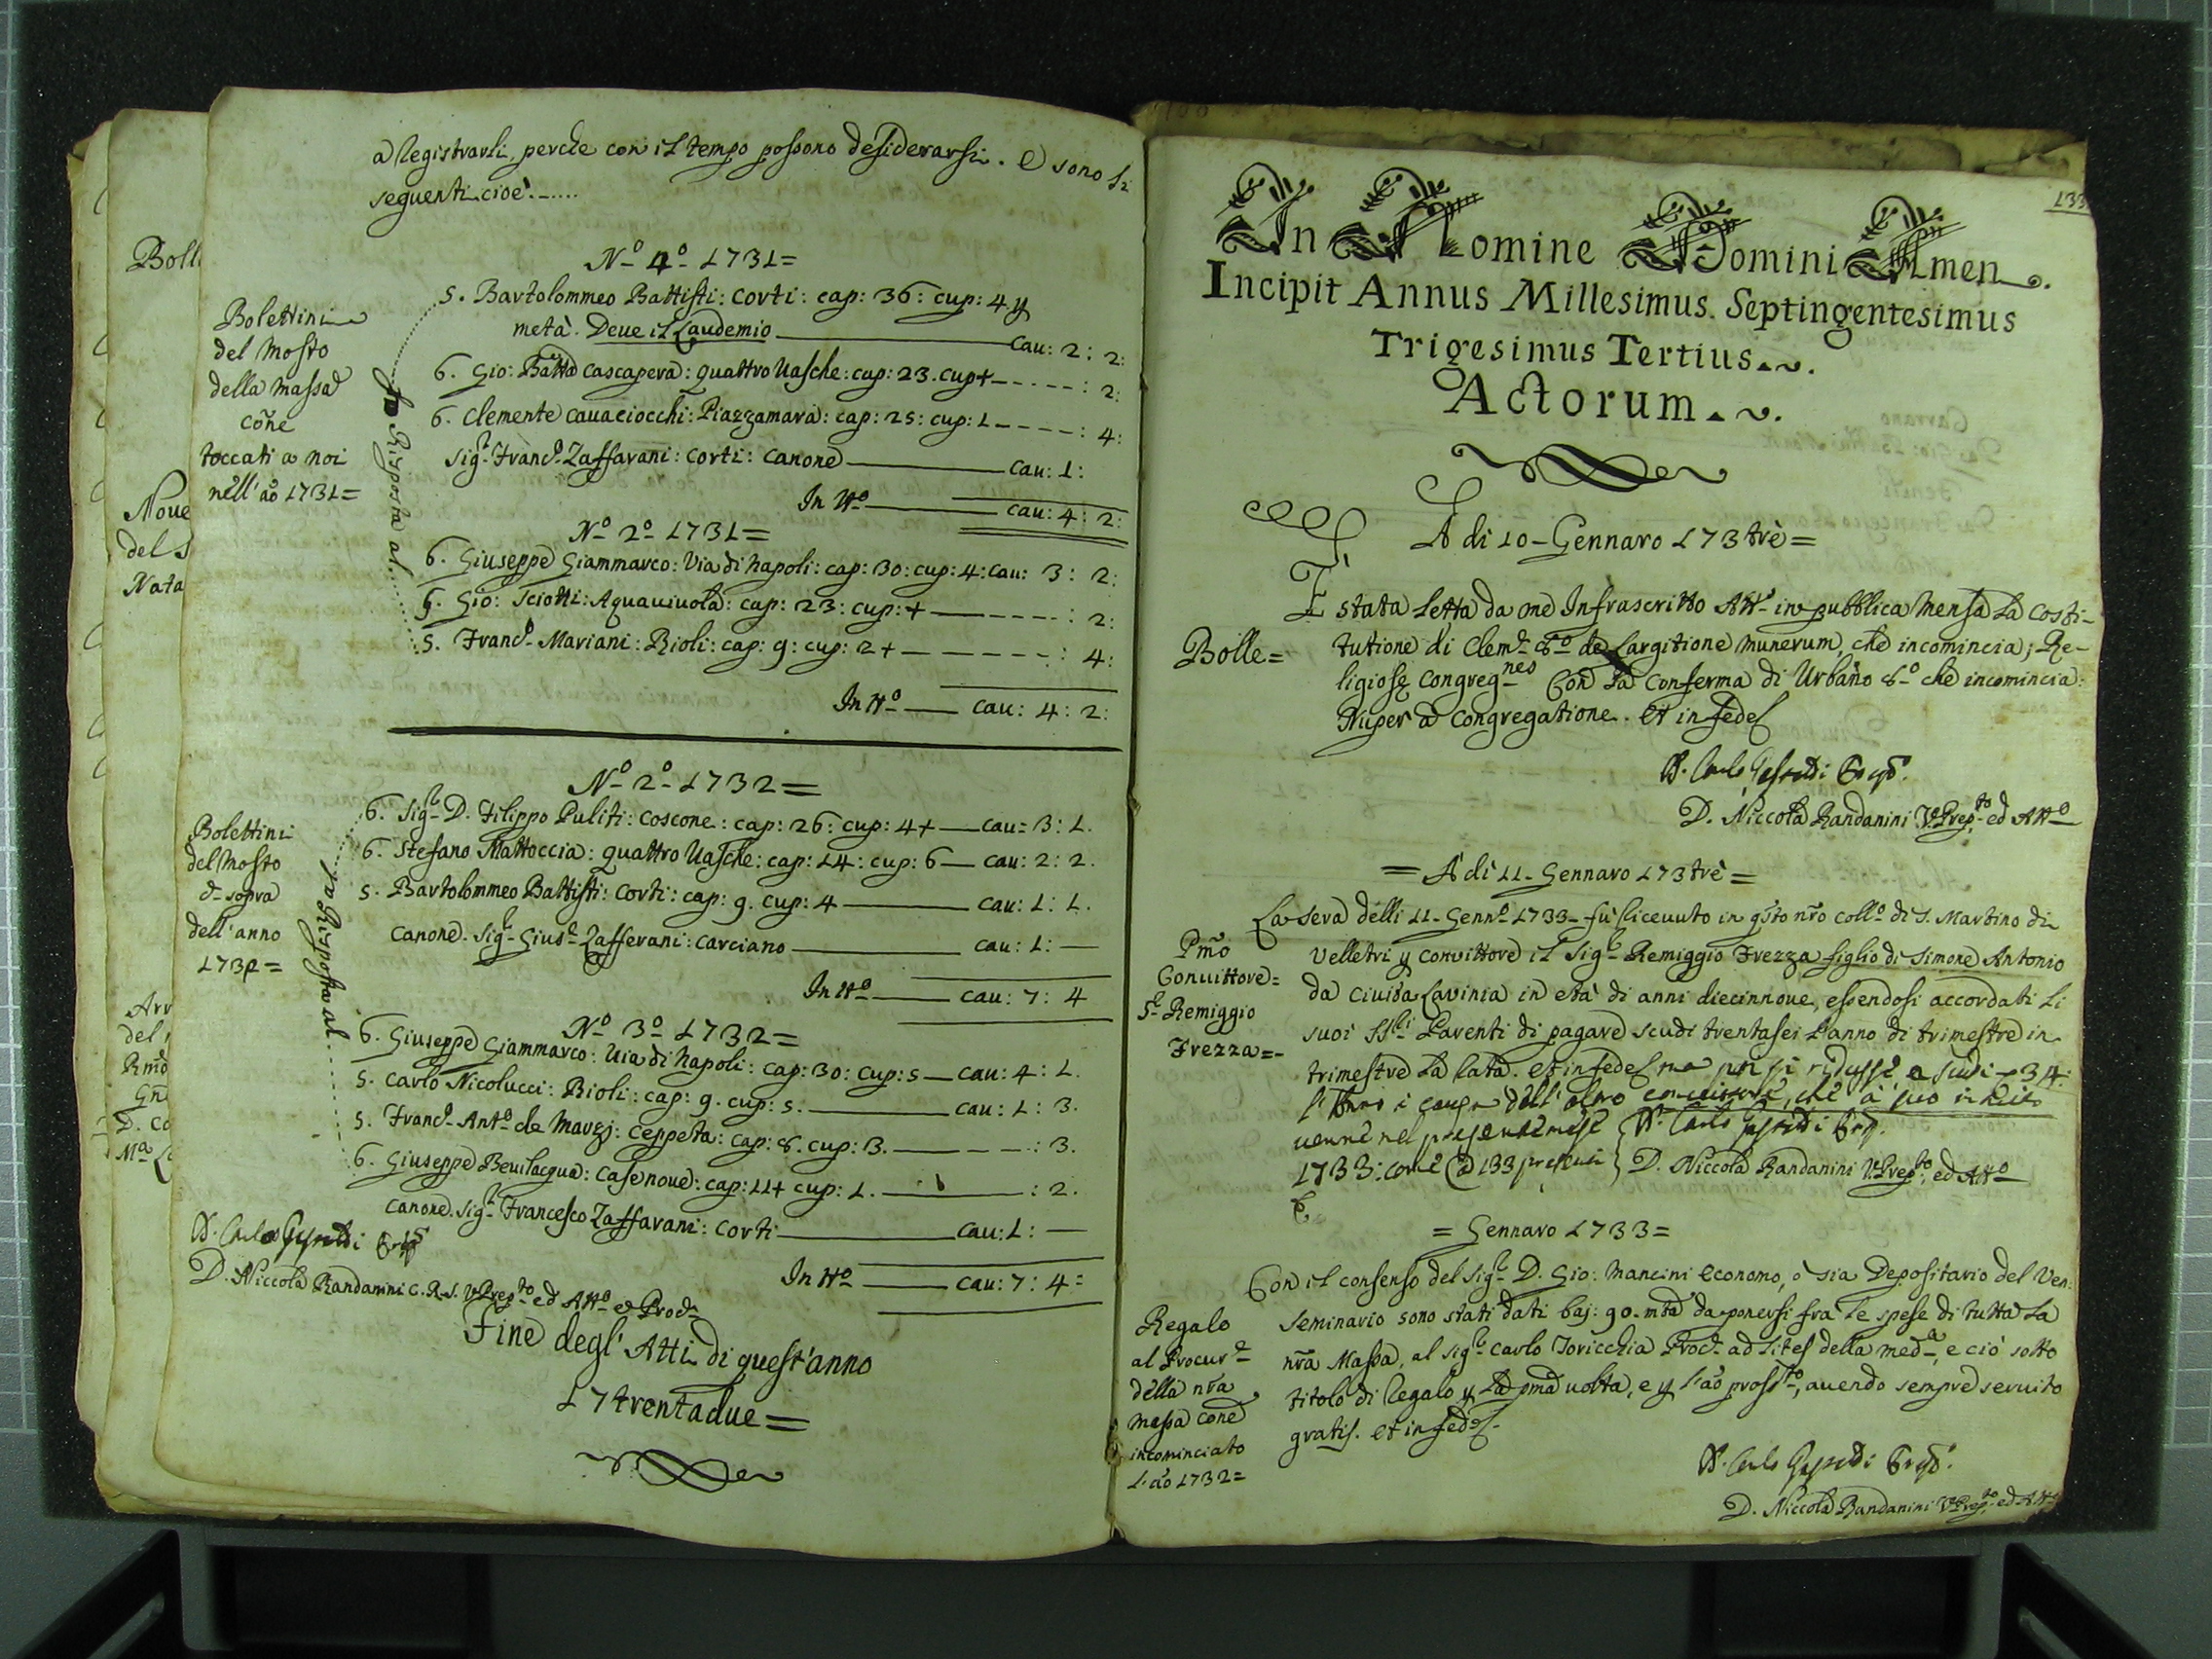 a Registrarli, perche con il tempo possono desiderarsi. E sono li
seguenti cioè......
Bolettini
del Mosto
della Massa
coñe
toccati a noi
nell'ão 1731=
p Risposta al......
No 4o 1731=
5. Bartolommeo Battisti: Corti: cap: 36: cup: 4 y
metà. Deue il Laudemio Cau: 2: 2:
6. Gio: Batta Cascapera: quattro Vasche: cup: 23. cup+ ----: 2:
6. Clemente Cauaciocchi: Piazzamara: cap: 25: cup: 1 ----: 4:
Sigr Franco Zaffarani: Corti: Canone Cau: 1:
In tto Cau: 4: 2:
No 2o 1731=
6. Giuseppe Giammarco: Via di Napoli: cap: 30: cup: 4: Cau: 3: 2:
5. Gio: Sciotti: Aquauiuola: cap: 23: cup: + ----: 2:
5. Franco Mariani: Rioli: cap: 9: cup: 2+ -----: 4:
In tto Cau: 4: 2:
Bolettini
del Mosto
d sopra
dell'anno
1732=
p Risposta al......
No 2o 1732=
6. Sigr D. Filippo Puliti: Coscone: cap: 26: cup: 4+ Cau: 3: 1.
6. Stefano Mattoccia: quattro Vasche: cap: 14: cup: 6 Cau: 2: 2.
5. Bartolommeo Battisti: Corti: cap: 9. cup: 4 Cau: 1: 1.
Canone. Sigr Giuse Zafferani: Carciano Cau: 1: —
In tto Cau: 7: 4
No 3o 1732=
6. Giuseppe Giammarco: Via di Napoli: cap: 30: cup: 5 Cau: 4: 1.
5. Carlo Nicolucci: Rioli: cap: 9. cup: 5. Cau: 1: 3.
5. Franco Anto de Marzj: Ceppeta: cap: 8. cup: 3. ---: 3.
6. Giuseppe Beuilacqua: Case noue: cap: 11+ cup: 1. : 2.
Canone. Sigr Francesco Zaffarani: Corti Cau: 1: —
In tto Cau: 7: 4=
D. Carlo
D. Niccola Randanini C. R. S. V. Prepto ed Atto e Procr
Fine degl' Atti di quest'anno
17trentadue=
133
In Nomine Domini Amen.
Incipit Annus Millesimus. Septingentesimus
Trigesimus Tertius.
Actorum.
A di 10 Gennaro 173trè=
Bolle=
È stata letta da me Infrascritto Atto in pubblica Mensa la Costi-
tutione di Clemte 8o de Largitione munerum, che incomincia; Re-
ligiosę Congregnes Con la Conferma di Urbano 8o che incomincia:
Nuper a Congregatione. Et in fede
D. Carlo
D. Niccola Randanini V. Prepto ed Atto
= A di 11 Gennaro 173trè=
Pmo
Conuittore=
Sr Remiggio
Frezza=
La sera delli 11 Genno 1733 fu riceuuto in qsto nro Collo di S. Martino di
Velletri y Conuittore il Sigr Remiggio Frezza figlio di Simone Antonio
da Ciuita Lavinia in età di anni diecinnoue, essendosi accordati li
suoi SSri Parenti di pagare scudi trentasei l'anno di trimestre in
trimestre la rata. et in fede ma poi si ridusse a scudi 34:
l'Anno à causa dell'altro conuittore, che
uenne nel presente mese
D. Carlo
1733: come @ 133
D. Niccola Randanini V. Prepto ed Atto
= Gennaro 1733=
Regalo
al Procure
della nra
Massa cone
incominciato
l'ão 1732=
Con il consenso del Sigr D. Gio: Mancini Economo, ò sia Depositario del Ven:
Seminario sono stati dati baj: 90. mta da ponersi fra le spese di tutta la
nra Massa, al Sigr Carlo Toricchia Procr ad lites della meda, e ciò sotto
titolo di Regalo y la pma uolta, e y l'ão prossto, auendo sempre seruito
gratis. et in fede
D. Carlo
D. Niccola Randanini V. Prepto ed Atto